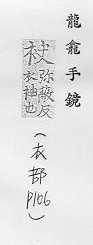 龍龕手鏡
弥蔽反
衣袖也
(衣部
P106)